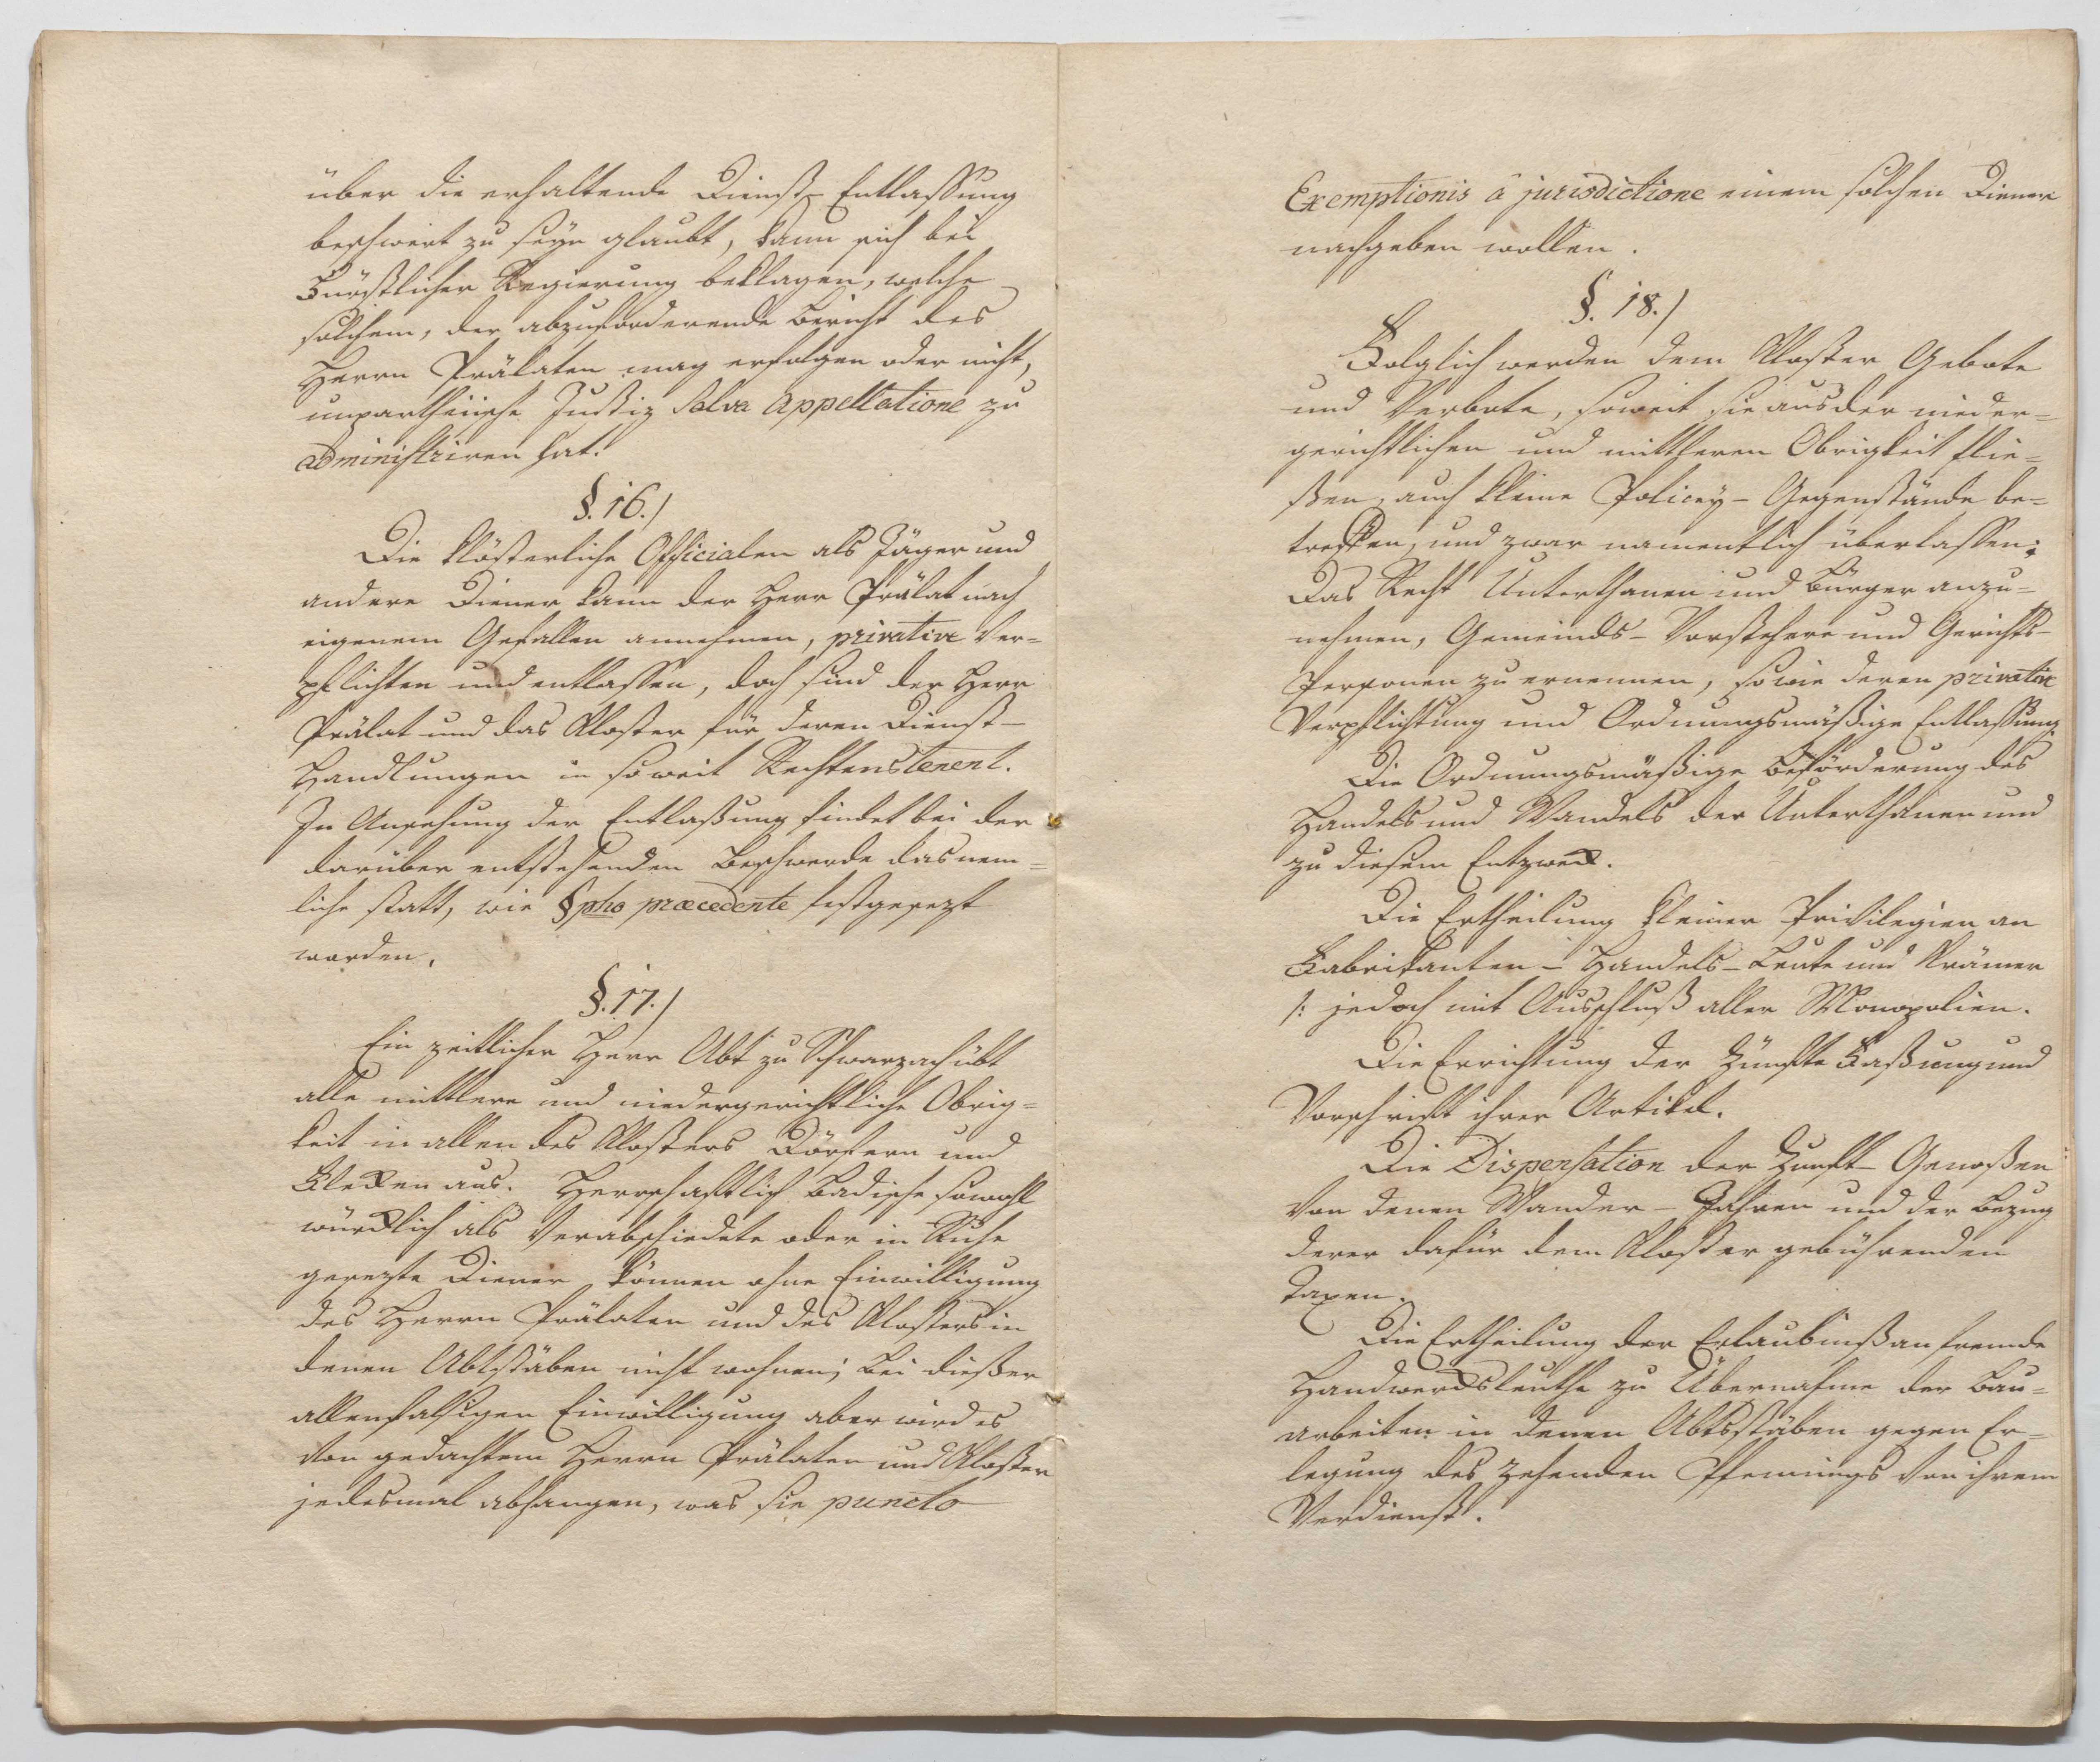 über die erhaltende Dienst-Entlassung
beschwert zu seyn glaubt, kann sich bei
Fürstlicher Regierung beklagen, welche
solchem, der abzufordernde Bericht des
Herrn Prälaten mag erfolgen oder nicht,
unpartheiische Justiz Salva Appellatione zu
administriren hat.
§. 16./
Die klösterliche Officialen als Jäger und
andere Diener kann der Herr Prälat nach
eigenem Gefallen annehmen, privative ver=
pflichten und entlassen, doch sind der Herr
Prälat und das Kloster für deren Dienst-
Handlungen in soweit Rechtens tenent.
In Ansehung der Entlaßung findet bei der
darüber entstehenden Beschwerde das nem=
liche statt, wie §pho præcedente festgesezt
worden.
§. 17./
Ein zeitlicher Herr Abt zu Schwarzach übt
alle mittlere und niedergerichtliche Obrig=
keit in allen des Klosters Dörfern und
Flecken aus. Herrschaftlich Badische sowohl
würcklich als verabschiedete oder in Ruhe
gesezte Diener, können ohne Einwilligung
des Herrn Prälaten und des Klosters in
denen Abtsstäben nicht wohnen; bei dießer
allenfalsigen Einwilligung aber wird es
von gedachtem Herrn Prälaten und Kloster
jedesmal abhangen, was sie puncto
Exemptionis â jurisdictione einem solchen Diener
nachgeben wollen.
§. 18./
Folglich werden dem Kloster Gebote
und Verbote, soweit sie aus der nieder=
gerichtlichen und mittleren Obrigkeit flie=
ßen, auch kleine Policey-Gegenstände be=
treffen, und zwar namentlich überlassen:
Das Recht Unterthanen und Bürger anzu=
nehmen, Gemeinds-Vorstehere und Gerichts-
Personen zu ernennen, so wie deren privative
Verpflichtung und Ordnungsmäßige Entlassung.
Die Ordnungsmäßige Beförderung des
Handels und Wandels der Unterthanen und
zu diesem Entzweck.
Die Ertheilung kleiner Privilegien an
Fabrikanten- Handels-Leute und Krämer
/: jedoch mit Ausschluß aller Monopolien.
Die Errichtung der Zünfte Faßung und
Vorschrift ihrer Artikel.
Die Dispensation der Zunft-Genoßen
von denen Wander-Jahren und der Bezug
derer dafür dem Kloster gebührenden
Taxen.
Die Ertheilung der Erlaubniß an fremde
Handwercksleuthe zu Übernahme der Bau=
arbeiten in denen Abtsstäben gegen Er=
legung des zehenden Pfennings von ihrem
Verdienst.